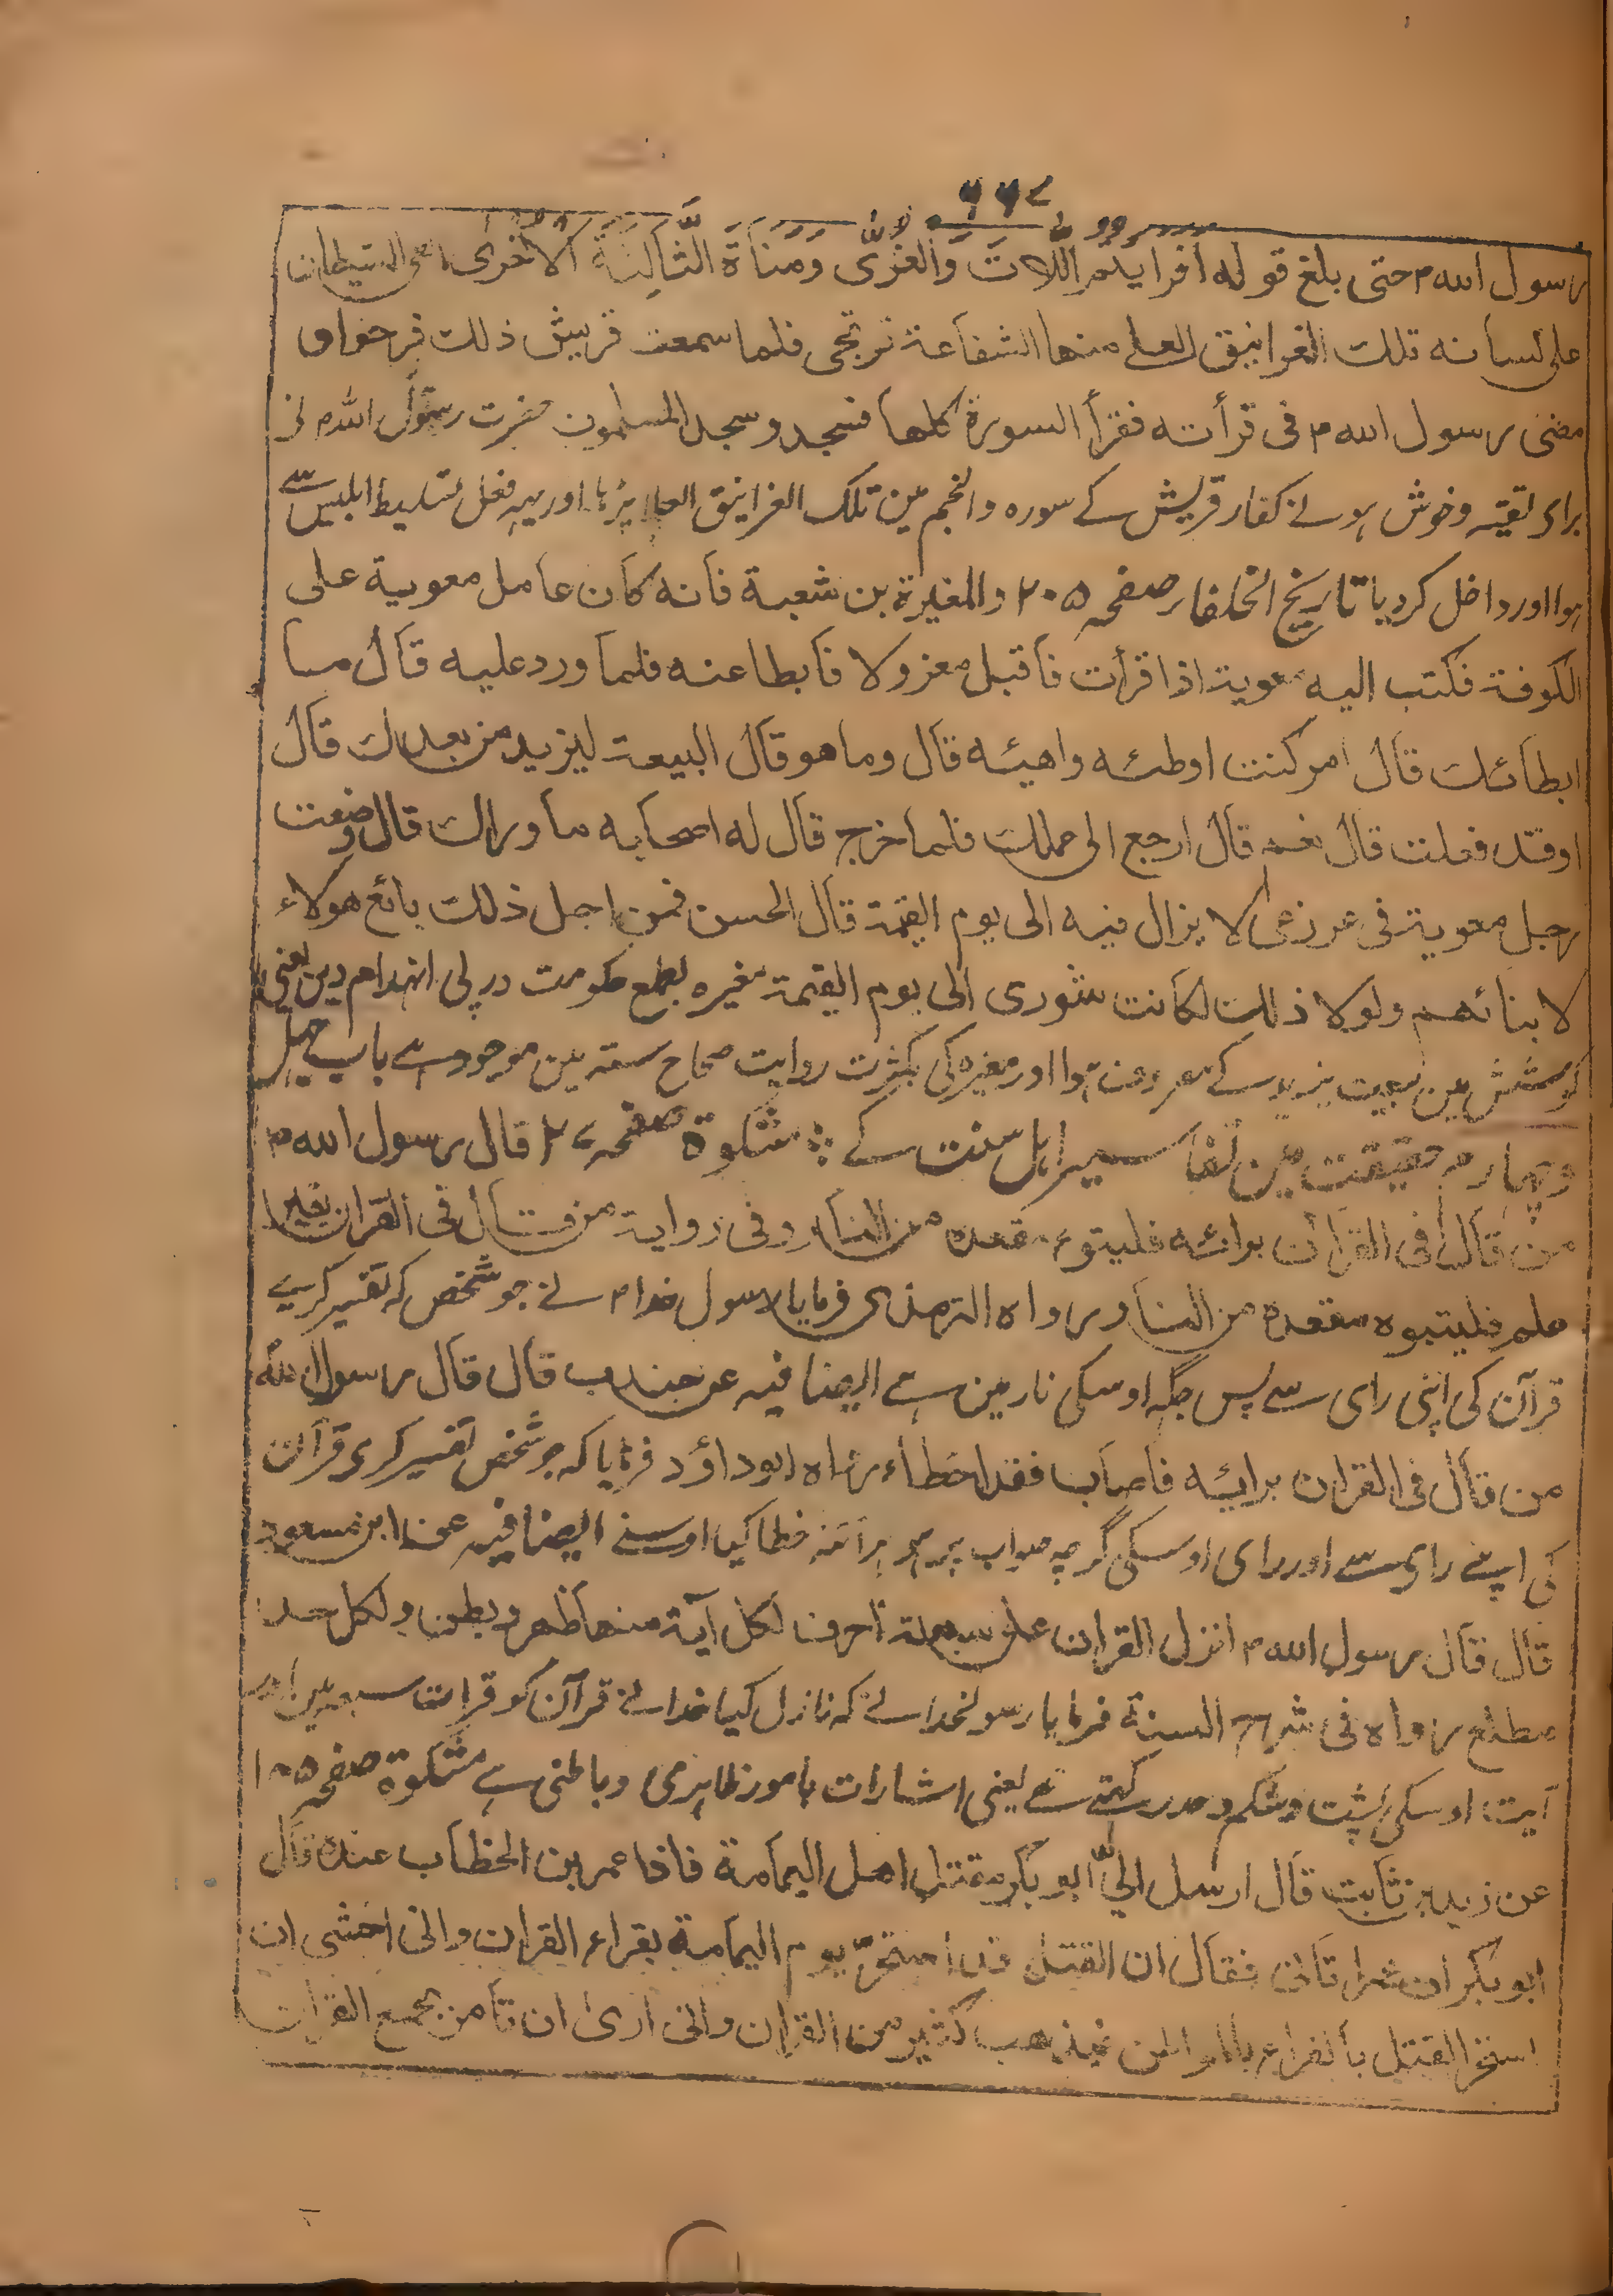 ۶۶۷
رسول الله م حتى بلغ قوله أَفَرَأَيْتُمُ اللَّاتَ وَالْعُزَّى وَمَنَاةَ الثَّالِثَةَ الْأُخْرَى القى الشيطان
على لسانه تلك الغرانيق العلى منها الشفاعة ترتجى فلما سمعت قريش ذلك فرحوا و
مضى رسول الله م فى قرأته فقرأ السورة كلها فسجد وسجد المسلمون حضرت رسول اللہ م نے
برای تقیہ و خوش ہونے کفار قریش کے سورہ والنجم مین تلک الغرانیق العلا پڑہا اور یہہ فعل تسلیط ابلیس سے
ہوا اور داخل کردیا تاریخ الخلفاء صفحہ ۲۰۵ والمغيرة بن شعبة فانه كان عامل معوية على
الكوفة فكتب اليه معوية اذا قرأت فاقبل معزولا فابطا عنه فلما ورد عليه قال ما
ابطائك قال امر كنت اوطئه واهيئه قال وما هو قال البيعة ليزيد من بعدك قال
اوقد فعلت قال نعم قال ارجع الى عملك فلما خرج قال له اصحابه ما وراك قال وضعت
رجل معوية فى غرز غى لا يزال فيه الى يوم القيمة قال الحسن فمن اجل ذلك بائع هولاء
لابنائهم ولولا ذلك لكانت شورى الى يوم القيمة مغیرہ بطمع حکومت در پی انہدام دین یعنی
کوشش مین بیعت یزید کے مصروف ہوا اور مغیرہ کی بکثرت روایت صحاح ستہ مین موجود ہے باب چہل
و چہارم حقیقت مین تفاسیر اہل سنت کے ؞ مشکوۃ صفحہ ۲۷ قال رسول الله م
من قال فى القرآن برائه فليتبوء مقعده من النار وفى رواية من قال فى القران بغير
علم فليتبوه مقعده من النار رواه الترمذى فرمایا رسول خدا م نے جو شخص کہ تفسیر کرے
قرآن کی اپنی رای سے پس جگہ اوسکی نار مین ہے ایضا فیہ عن جندب قال قال رسول الله
من قال فى القران برائيه فاصاب فقد اخطاء رواه ابوداؤد فرمایا کہ جو شخص تفسیر کری قرآن
کی اپنے رای سے اور رای اوسکی گرچہ صواب پر ہو ہر آئنہ خطا کیا اوسنے ایضا فیہ عن ابن مسعود
قال قال رسول الله م انزل القران على سبعة احرف لكل آية منها ظهر وبطن ولكل حد
مطلع رواه فى شرح السنة فرمایا رسولخدا نے کہ نازل کیا خدا نے قرآن کو قرات سبعہ پر ہر
آیت اوسکی پشت و شکم و حد رکہتے ہے یعنی اشارات بامور ظاہری و باطنی ہے مشکوۃ صفحہ ۱۸۵
عن زيد بن ثابت قال ارسل الىّ ابو بكر مقتل اهل اليمامة فاذا عمر بن الخطاب عنده قال
ابو بكر ان عمر اتانى فقال ان القتل قد استحرّ يوم اليمامة بقراء القران وانى اخشى ان
استحر القتل بالقراء بالمواطن فيذهب كثير من القران وانى ارى ان تأمر بجمع القران